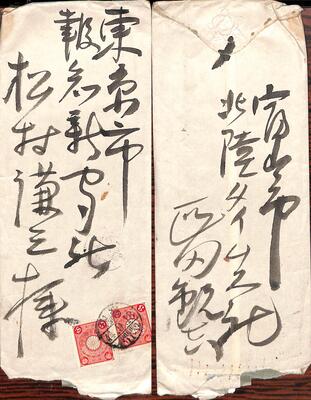 東京市
報知新聞社
松村謙三様
富山市
北陸タイムス社
匹田